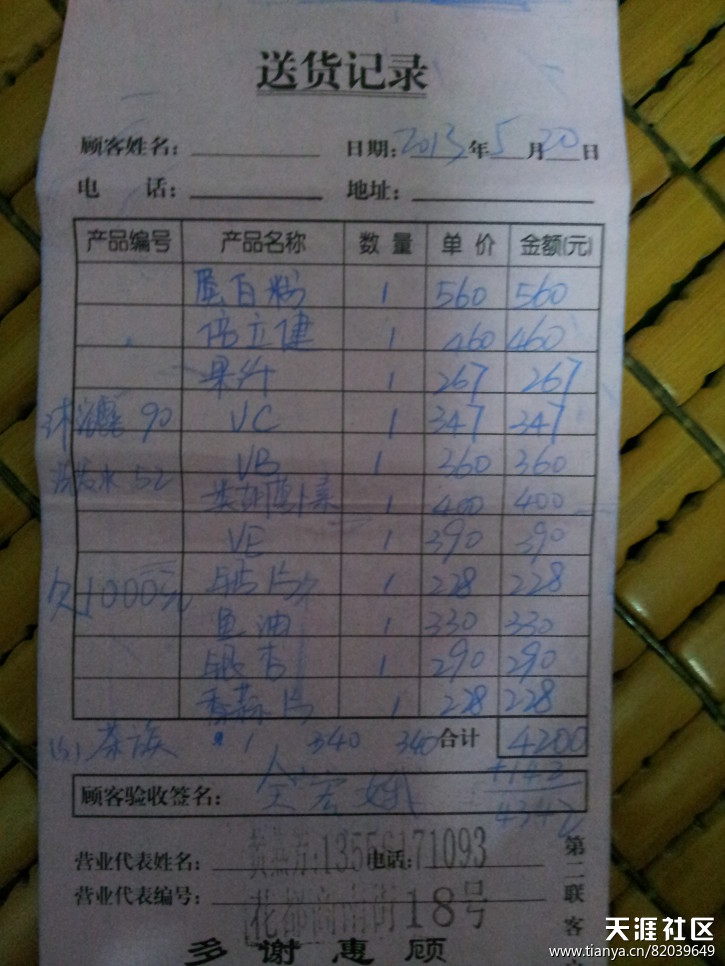 送货记录
顾客姓名: 日期: 2013年5月20日
电 话: 地址:
产品编号 产品名称 数量 单价 金额(元)
蛋白粉 1 560 560
倍立健 1 460 460
果纤 1 267 267
沐浴露 90 VC 1 347 347
洗发水 52 VB 1 360 360
类胡萝卜素 1 400 400
VE 1 390 390
欠1000元 钙片 1 228 228
鱼油 1 330 330
银杏 1 290 290
香蒜片 1 228 228
茶族 1 340 340 合计 4200
+142
顾客验收签名: 4342
营业代表姓名: 电话: 13556171093
营业代表编号: 花都商南街18号
第二联 客
多谢惠顾
天涯社区
www.tianya.cn/82039649